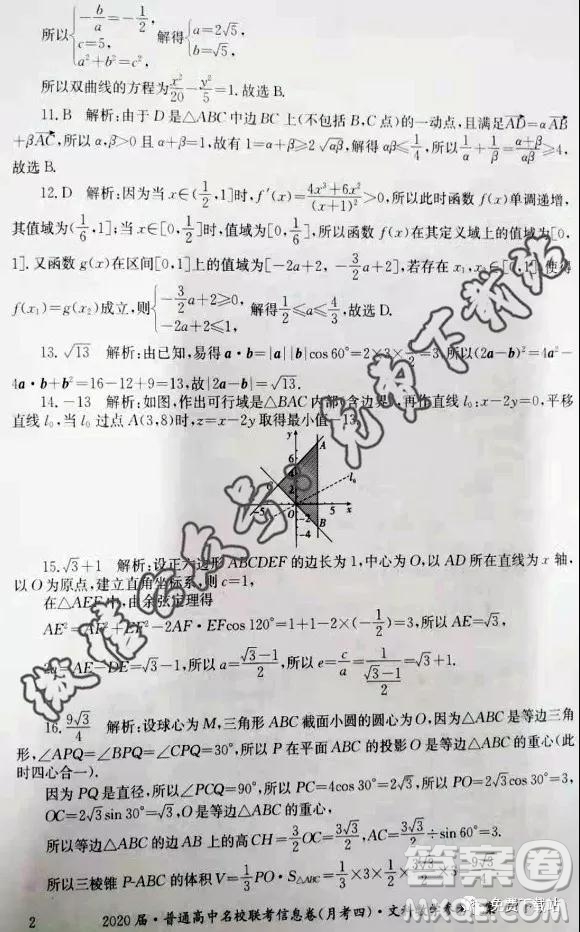 所以{-b/a=-1/2, c=5, a²+b²=c², 解得{a=2√5, b=√5,
所以双曲线的方程为x²/20-y²/5=1.故选B.
11.B 解析:由于D是△ABC中边BC上(不包括B,C点)的一动点,且满足AD=αAB
+βAC,所以α,β>0且α+β=1,故有1=α+β≥2√αβ,解得αβ≤1/4,所以1/α+1/β=(α+β)/αβ≥4,
故选B.
12.D 解析:因为当x∈(1/2,1]时,f′(x)=(4x³+6x²)/(x+1)²>0,所以此时函数f(x)单调递增,
其值域为(1/6,1];当x∈[0,1/2]时,值域为[0,1/6],所以函数f(x)在其定义域上的值域为[0,
1].又函数g(x)在区间[0,1]上的值域为[-2a+2,-3/2a+2],若存在x₁,x₂∈[0,1],使得
f(x₁)=g(x₂)成立,则{-3/2a+2≥0, -2a+2≤1, 解得1/2≤a≤4/3,故选D.
13.√13 解析:由已知,易得a·b=|a||b|cos60°=2×3×1/2=3,所以(2a-b)²=4a²-
4a·b+b²=16-12+9=13,故|2a-b|=√13.
14.-13 解析:如图,作出可行域是△BAC内部(含边界),再作直线l₀:x-2y=0,平移
直线l₀,当l₀过点A(3,8)时,z=x-2y取得最小值-13.
y
A
6
4
2
l₀
-5
O
5
x
-2
-4
B
15.√3+1 解析:设正六边形ABCDEF的边长为1,中心为O,以AD所在直线为x轴,
以O为原点,建立直角坐标系,则c=1,
在△AEF中,由余弦定理得
AE²=AF²+EF²-2AF·EFcos120°=1+1-2×(-1/2)=3,所以AE=√3,
2a=AE-DE=√3-1,所以a=(√3-1)/2,所以e=c/a=1/((√3-1)/2)=√3+1.
16.9√3/4 解析:设球心为M,三角形ABC截面小圆的圆心为O,因为△ABC是等边三角
形,∠APQ=∠BPQ=∠CPQ=30°,所以P在平面ABC的投影O是等边△ABC的重心(此
时四心合一).
因为PQ是直径,所以∠PCQ=90°,所以PC=4cos30°=2√3,所以PO=2√3cos30°=3,
OC=2√3sin30°=√3,O是等边△ABC的重心,
所以等边△ABC的边AB上的高CH=3/2OC=3√3/2,AC=3√3/2÷sin60°=3.
所以三棱锥P-ABC的体积V=1/3PO×S△ABC=1/3×3×1/2×3√3/2×3=9√3/4.
2 2020届·普通高中名校联考信息卷(月考四)·文科
免费下载站
答案圈